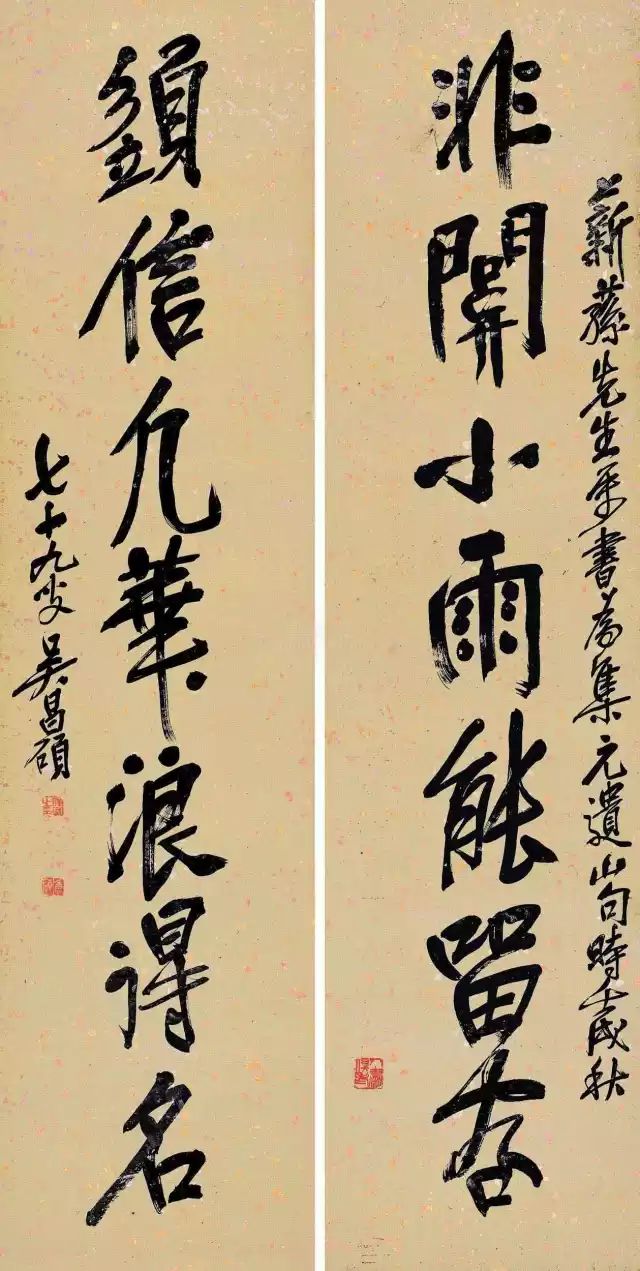 薪先生書為集元遺山句時壬戌秋
非關小雨能留客
須信凡華浪得名
七十九叟吳昌碩